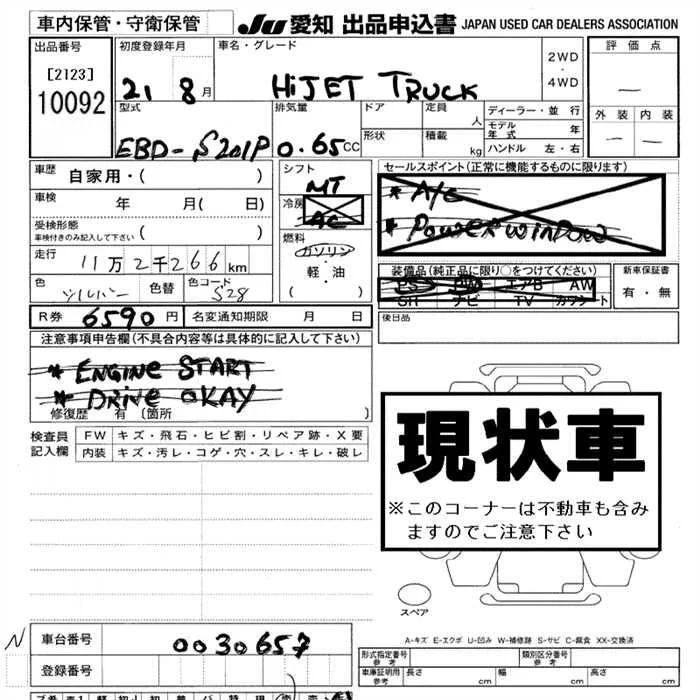 車内保管・守衛保管
JU 愛知 出品申込書 JAPAN USED CAR DEALERS ASSOCIATION
出品番号
[2123]
10092
初度登録年月
21 8月
車名・グレード
HiJET TRUCK
2WD
・
4WD
評価点
―
外装 内装
― ―
型式
EBD-S201P
排気量
0.65cc
ドア
形状
定員
人
積載
kg
ディーラー・並行
モデル年式 年
ハンドル 左・右
車歴 自家用・( )
車検 年 月( 日)
受検形態
車検付きのみ記入して下さい ( )
走行 11万2千266km
色 シルバー 色替 色コード S28
シフト
MT
冷房
AC
燃料
ガソリン
・
軽・油
( )
セールスポイント(正常に機能するものに限ります)
* A/C
* POWER WINDOW
装備品(純正品に限り○をつけてください)
PS PW エアB AW
SR ナビ TV カワシート
新車保証書
有・無
R券 6590円 名変通知期限 月 日
後日品
注意事項申告欄(不具合内容等は具体的に記入して下さい)
* ENGINE START
* DRIVE OKAY
修復歴 有〔箇所 〕
検査員記入欄
FW キズ・飛石・ヒビ割・リペア跡・X要
内装 キズ・汚レ・コゲ・穴・スレ・キレ・破レ
現状車
※このコーナーは不動車も含み
ますのでご注意下さい
スペア
A-キズ E-エクボ U-凹み W-補修跡 S-サビ C-腐食 XX-交換済
N
車台番号 0030657
登録番号
形式指定番号
参考
類別区分番号
参考
車庫証明用
参考
長さ cm 幅 cm 高さ cm